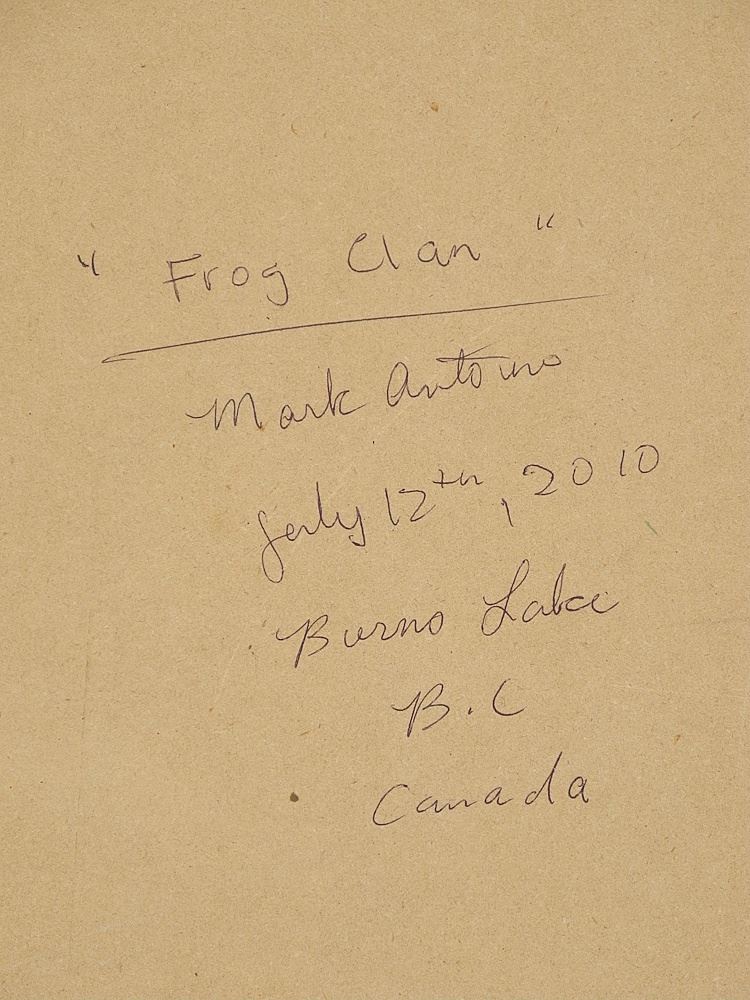 " Frog Clan "
Mark Antoine
July 12th, 2010
Burns Lake
B.C
Canada